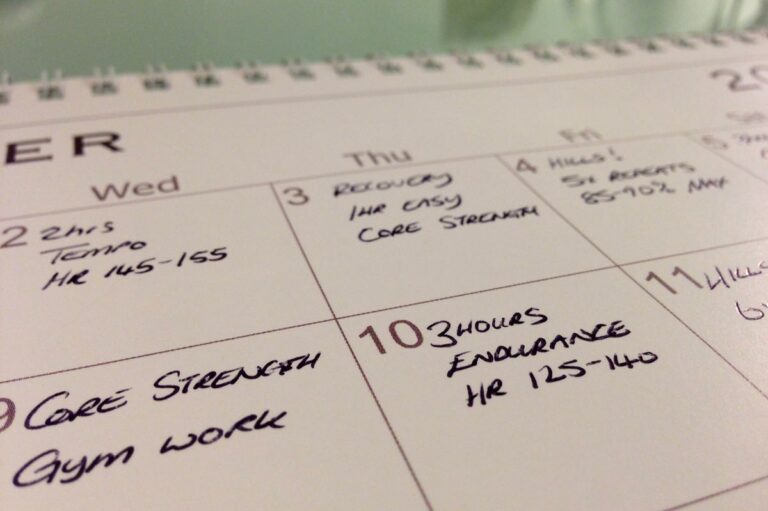 ER
20
Wed
Thu
Fri
2
2hrs
TEMPO
HR 145-155
3
RECOVERY
1HR EASY
CORE STRENGTH
4
HILLS!
5x REPEATS
85-90% MAX
5
9
CORE STRENGTH
GYM WORK
10
3HOURS
ENDURANCE
HR 125-140
11
HILLS